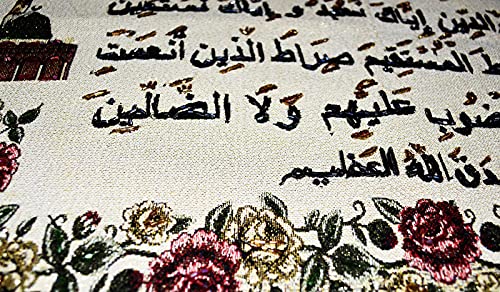 الدين إياك نعبد وإياك نستعين
المستقيم صراط الذين أنعمت
عليهم ولا الضالين
الله العظيم